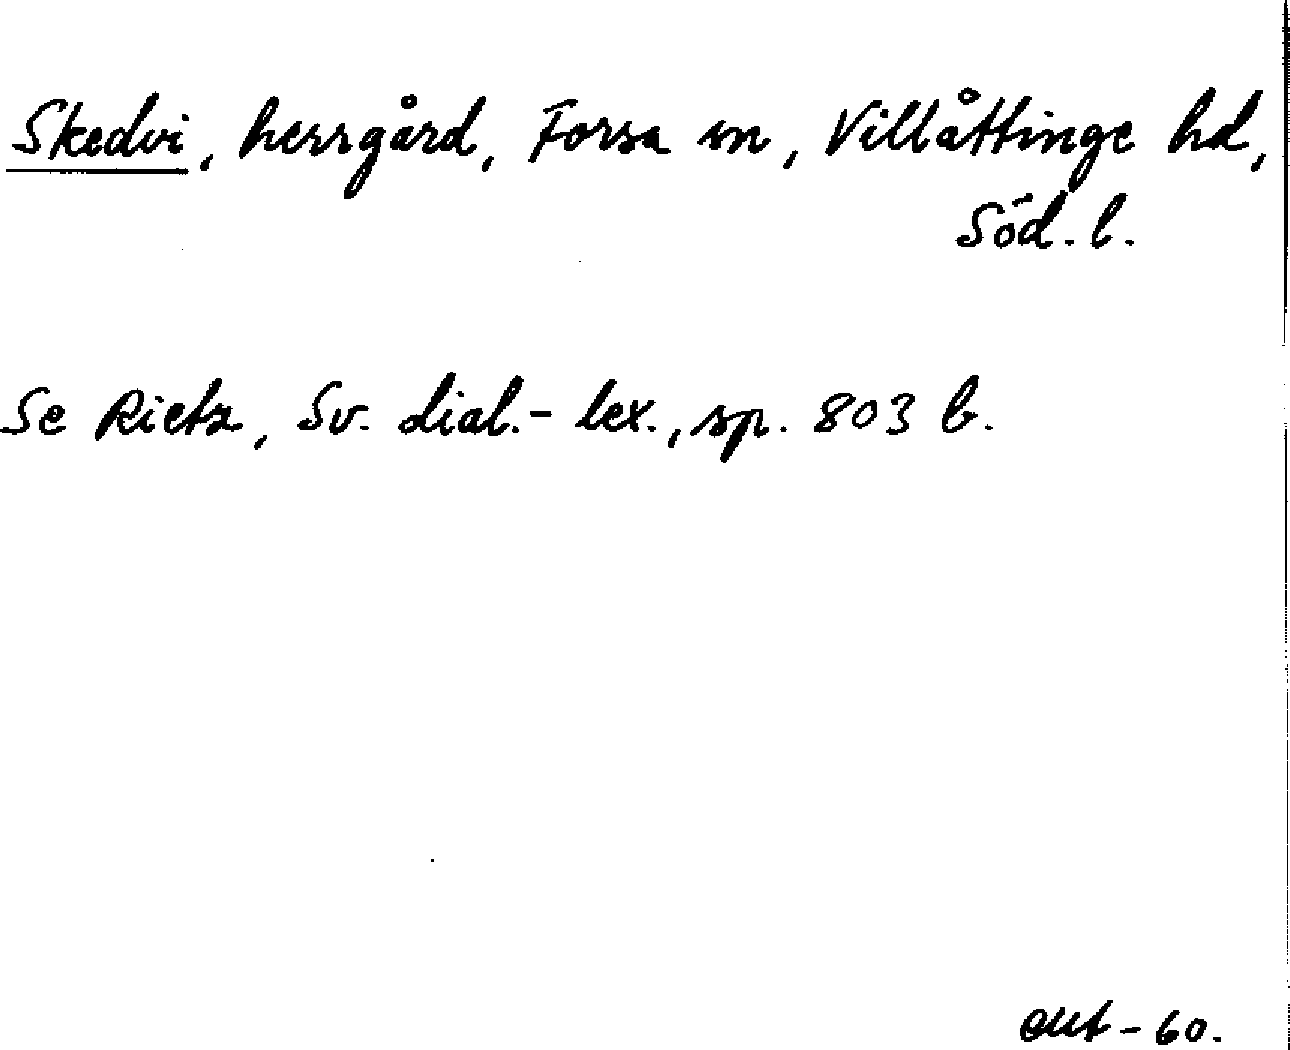 Skedvi, herrgård, Forsa sn, Villåttinge hd,
Söd. l.
Se Rietz, Sv. dial.-lex., sp. 803 b.
okt-60.